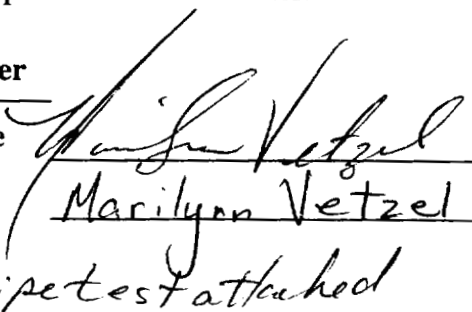 er
e Marilynn Vetzel
Marilynn Vetzel
ipetest attached